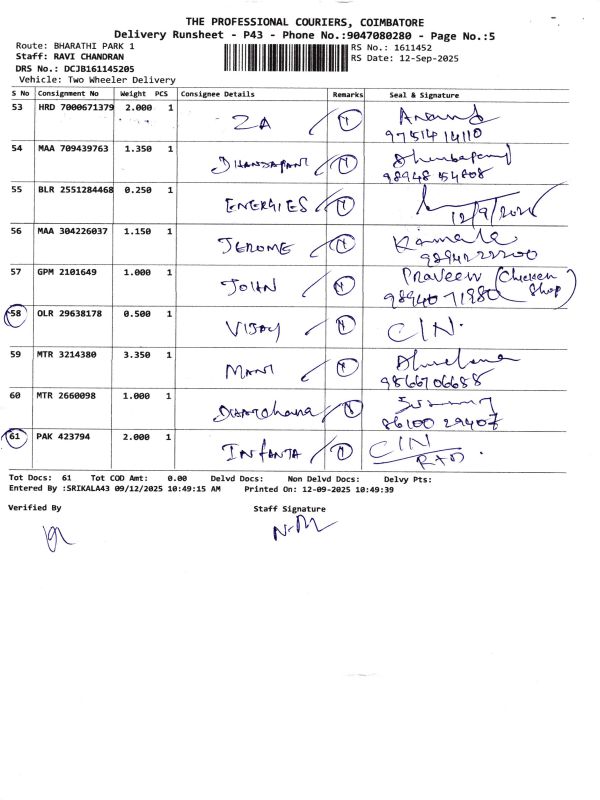 THE PROFESSIONAL COURIERS, COIMBATORE
Delivery Runsheet - P43 - Phone No.:9047080280 - Page No.:5
Route: BHARATHI PARK 1
RS No.: 1611452
Staff: RAVI CHANDRAN
RS Date: 12-Sep-2025
DRS No.: DCJB161145205
Vehicle: Two Wheeler Delivery
S No Consignment No Weight PCS Consignee Details Remarks Seal & Signature
53 HRD 7000671379 2.000 1 ZA Anand
9751414110
54 MAA 709439763 1.350 1 DHANDAPANI
98948 54808
55 BLR 2551284468 0.250 1 ENERGIES
12/9/2025
56 MAA 304226037 1.150 1 JEROME Kamala
9894222200
57 GPM 2101649 1.000 1 JOHN Praveen (Chicken Shop)
9894071980
58 OLR 29638178 0.500 1 VIJAY C/N.
59 MTR 3214380 3.350 1 MANI
9866706688
60 MTR 2660098 1.000 1
86100 29407
61 PAK 423794 2.000 1 INFANTA C/N
Tot Docs: 61 Tot COD Amt: 0.00 Delvd Docs: Non Delvd Docs: Delvy Pts:
Entered By :SRIKALA43 09/12/2025 10:49:15 AM Printed On: 12-09-2025 10:49:39
Verified By Staff Signature